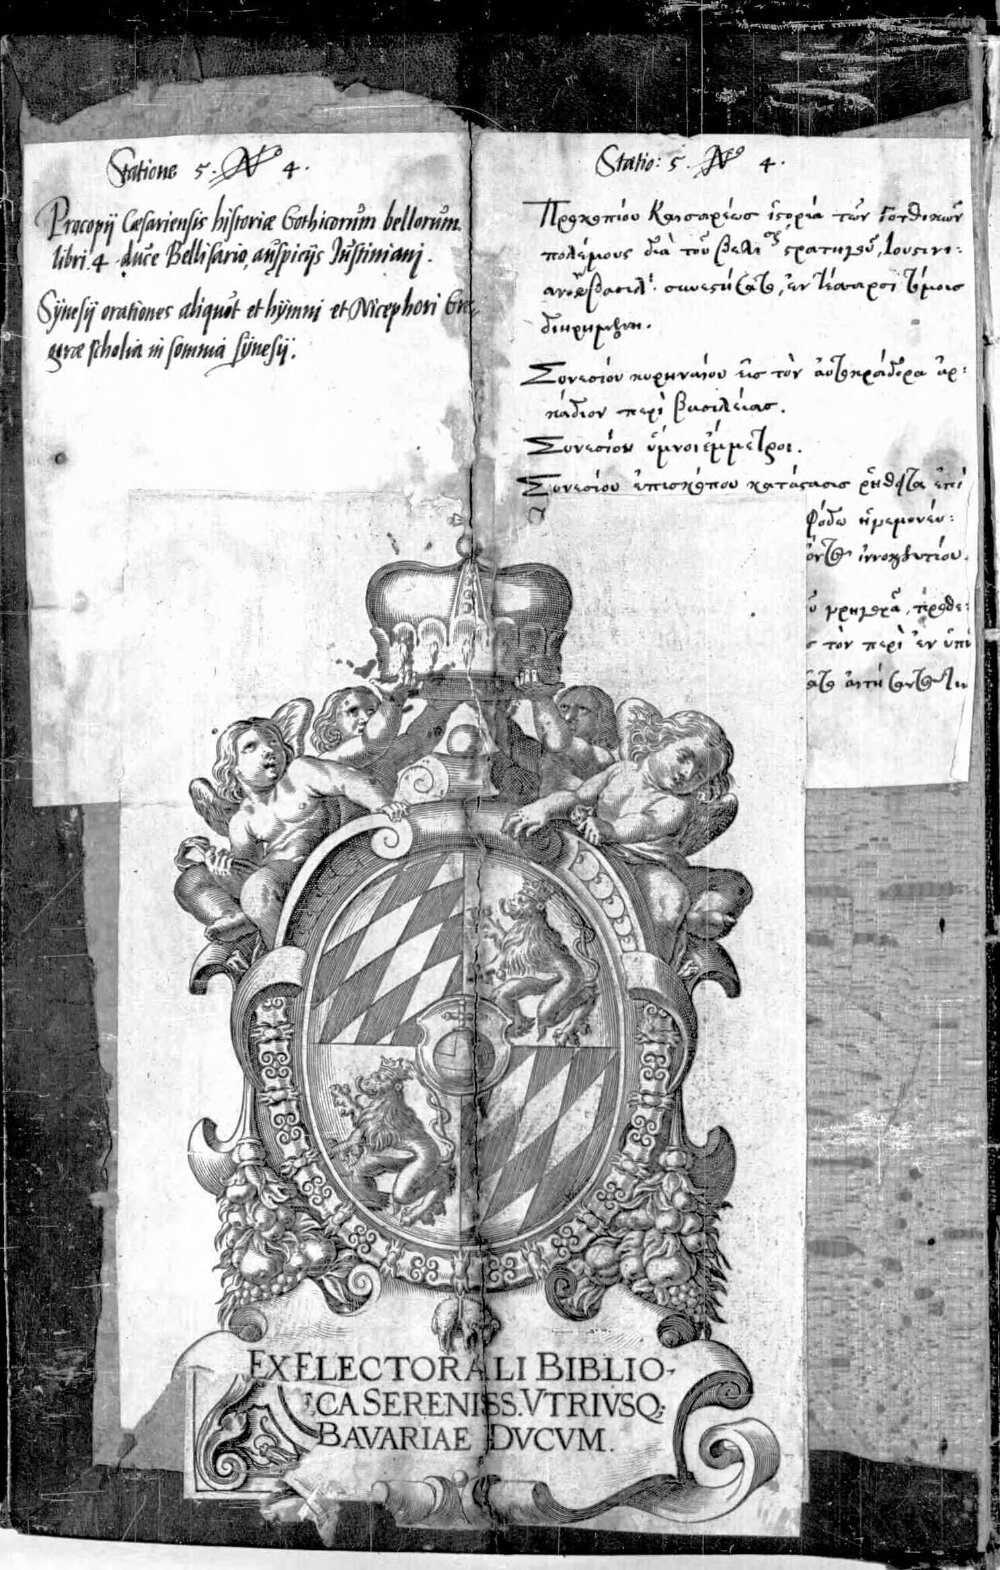 Statione 5. N° 4.
Procopij Cæsariensis historiæ Gothicorum bellorum
libri 4 duce Bellisario, auspicijs Justiniani.
Synesij orationes aliquot et hymni et Nicephori Gre-
goræ scholia in somnia synesij.
Statio: 5. N° 4.
Προκοπίου Καισαρέως ἱστορία τῶν Γοτθικῶν
πολέμους διὰ τοῦ στρατηγοῦ, Ἰουστινι:
ἐν τέσσαρσι τόμοις
διῃρημένη.
Συνεσίου κυρηναίου εἰς τὸν αὐτοκράτορα ἀρ:
κάδιον περὶ βασιλείας.
Συνεσίου ὕμνοι ἔμμετροι.
Συνεσίου ἐπισκόπου κατάστασις ῥηθεῖσα ἐπὶ
ἡγεμονεύ:
τὸν περὶ ἐν
EX ELECTORALI BIBLIO-
CA SERENISS. VTRIVSQ;
BAVARIAE DVCVM.